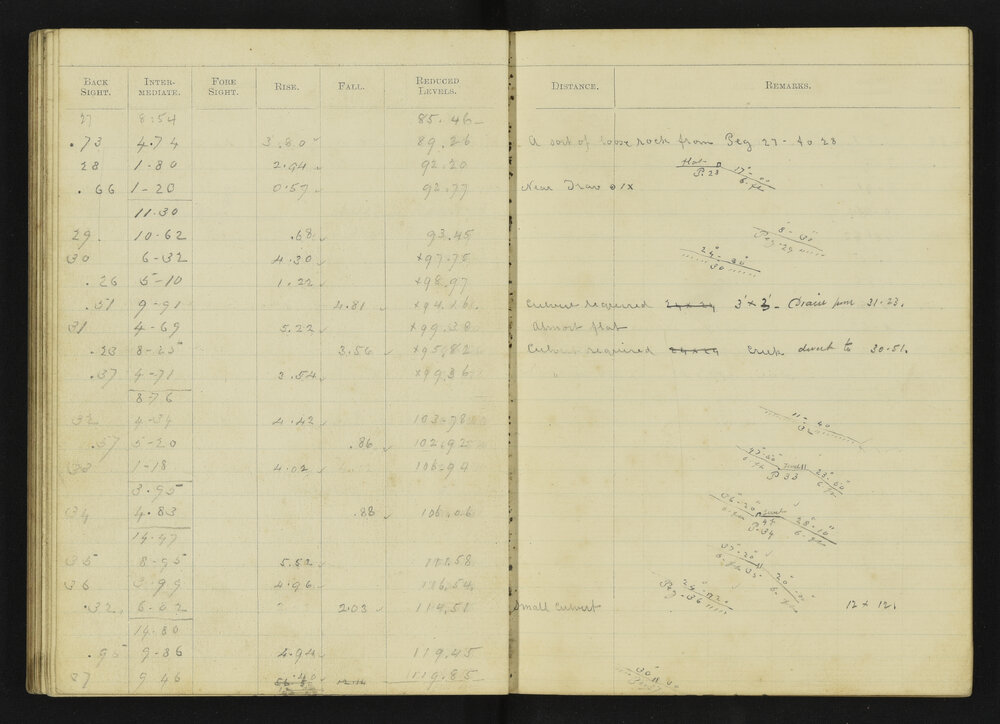 BACK SIGHT. INTER-MEDIATE. FORE SIGHT. RISE. FALL. REDUCED LEVELS. DISTANCE. REMARKS.
27 8.54 85.46
.73 4.74 3.80 89.26 A sort of loose rock from Peg 27 to 28
28 1-80 2.94 92.20 flat P.28 17°
.66 1-20 0.57 92.77 Near
11.30
29. 10-62 .68 93.45 Peg. 29
30 6-32 4.30 +97.75 30
.26 5-10 1.22 +98.97
.51 9-91 4.81 +94.16 Culvert required 24 x 24 3' x 3' - from 31.23.
31 4-69 5.22 +99.38 Almost flat
.23 8-25 3.56 +95.82 Culvert required 24 x 24 direct to 30.51.
.37 4-71 3.54 +99.36 "
8.76
32 4-34 4.42 103.78 11 - 40 32
.57 5-20 .86 102.92
33 1-18 4.02 106.94 P 33
3.95
34 4.83 .88 106.06 P.34
14.47
35 8-95 5.52 111.58 35
36 3.99 4.96 116.54 Peg. 36
.32 6-02 2.03 114.51 Small culvert 12 x 12.
14.80
.95 9-86 4.94 119.45
37 9 46 .40 119.85